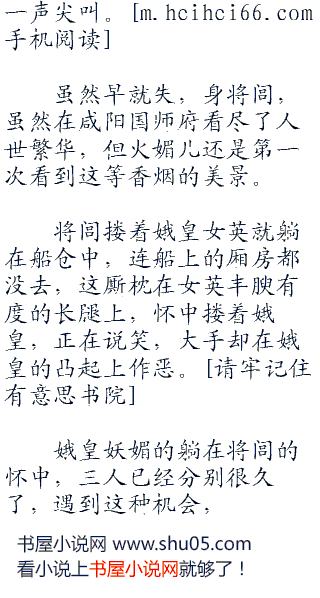 一声尖叫。[m.hcihci66.com
手机阅读]
虽然早就失，身将闾，
虽然在咸阳国师府看尽了人
世繁华，但火媚儿还是第一
次看到这等香烟的美景。
将闾搂着娥皇女英就躺
在船仓中，连船上的厢房都
没去，这厮枕在女英丰腴有
度的长腿上，怀中搂着娥
皇，正在说笑，大手却在娥
皇的凸起上作恶。[请牢记住
有意思书院]
娥皇妖媚的躺在将闾的
怀中，三人已经分别很久
了，遇到这种机会，
书屋小说网 www.shu05.com
看小说上书屋小说网就够了！